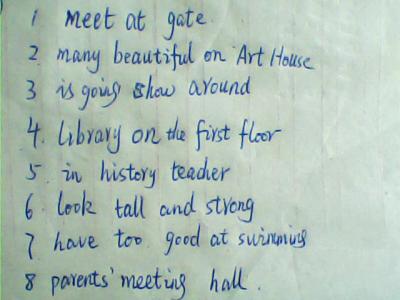 1 meet at gate.
2 many beautiful on Art House
3 is going show around
4. Library on the first floor
5. in history teacher
6. look tall and strong
7 have too good at swimming
8 parents' meeting hall.